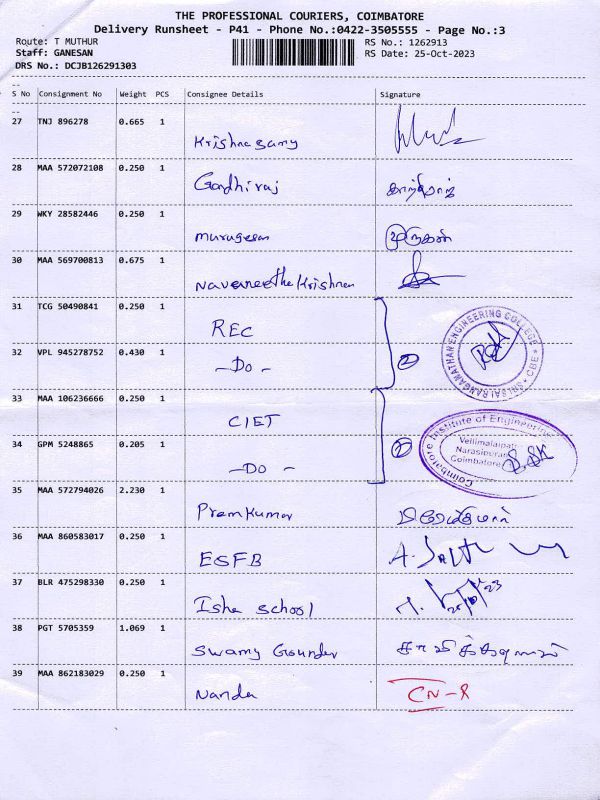 THE PROFESSIONAL COURIERS, COIMBATORE
Delivery Runsheet - P41 - Phone No.:0422-3505555 - Page No.:3
Route: T MUTHUR
RS No.: 1262913
Staff: GANESAN
RS Date: 25-Oct-2023
DRS No.: DCJB126291303
S No Consignment No Weight PCS Consignee Details Signature
27 TNJ 896278 0.665 1 Krishnasamy
28 MAA 572072108 0.250 1 Gandhiraj காந்திராஜ்
29 WKY 28582446 0.250 1 Murugesan முருகேசன்
30 MAA 569700813 0.675 1 Navaneetha Krishnan
31 TCG 50490841 0.250 1 REC
32 VPL 945278752 0.430 1 -Do-
②
SRI SAI RANGANATHAN ENGINEERING COLLEGE * CBE *
33 MAA 106236666 0.250 1 CIET
34 GPM 5248865 0.205 1 -Do-
②
Coimbatore Institute of Engineering
Vellimalaipatti
Narasipuram
Coimbatore
35 MAA 572794026 2.230 1 Premkumar
36 MAA 860583017 0.250 1 ESFB
37 BLR 475298330 0.250 1 Isha School
38 PGT 5705359 1.069 1 Swamy Gounder
39 MAA 862183029 0.250 1 Nanda CN-R